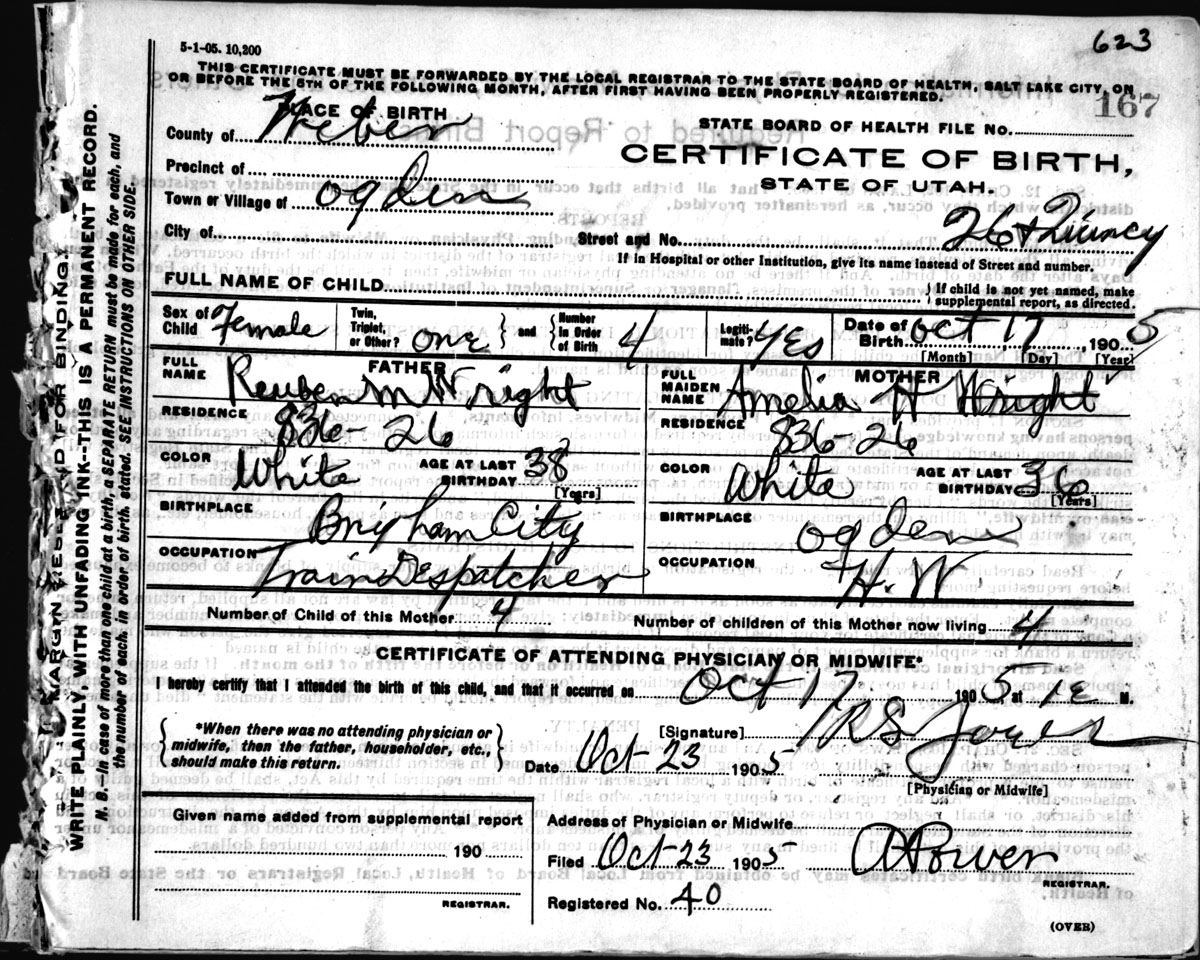 5-1-05. 10,200
623
THIS CERTIFICATE MUST BE FORWARDED BY THE LOCAL REGISTRAR TO THE STATE BOARD OF HEALTH, SALT LAKE CITY, ON
OR BEFORE THE 5TH OF THE FOLLOWING MONTH, AFTER FIRST HAVING BEEN PROPERLY REGISTERED.
167
PLACE OF BIRTH
County of Weber
STATE BOARD OF HEALTH FILE NO.
CERTIFICATE OF BIRTH,
STATE OF UTAH.
Precinct of
Town or Village of Ogden
City of
Street and No. 26 & Quincy
If in Hospital or other Institution, give its name instead of Street and number.
FULL NAME OF CHILD
If child is not yet named, make
supplemental report, as directed.
Sex of Child Female
Twin, Triplet, or Other? one and Number in Order of Birth 4
Legitimate? Yes
Date of Birth Oct 17 1905
[Month] [Day] [Year]
FATHER
FULL NAME Reuben M Wright
RESIDENCE 836-26
COLOR White AGE AT LAST BIRTHDAY 38
[Years]
BIRTHPLACE Brigham City
OCCUPATION Train Despatcher
MOTHER
FULL MAIDEN NAME Amelia H Wright
RESIDENCE 836-26
COLOR White AGE AT LAST BIRTHDAY 36
[Years]
BIRTHPLACE Ogden
OCCUPATION H. W
Number of Child of this Mother 4
Number of children of this Mother now living 4
CERTIFICATE OF ATTENDING PHYSICIAN OR MIDWIFE*
I hereby certify that I attended the birth of this child, and that it occurred on Oct 17 1905 at M.
*When there was no attending physician or
midwife, then the father, householder, etc.,
should make this return.
[Signature] RS Joyce
Date Oct 23 1905
[Physician or Midwife]
Given name added from supplemental report
190
REGISTRAR.
Address of Physician or Midwife
Filed Oct-23 1905
REGISTRAR.
Registered No. 40
(OVER)
MARGIN RESERVED FOR BINDING.
WRITE PLAINLY, WITH UNFADING INK--THIS IS A PERMANENT RECORD.
N. B.--In case of more than one child at a birth, a SEPARATE RETURN must be made for each, and
the number of each, in order of birth, stated. SEE INSTRUCTIONS ON OTHER SIDE.